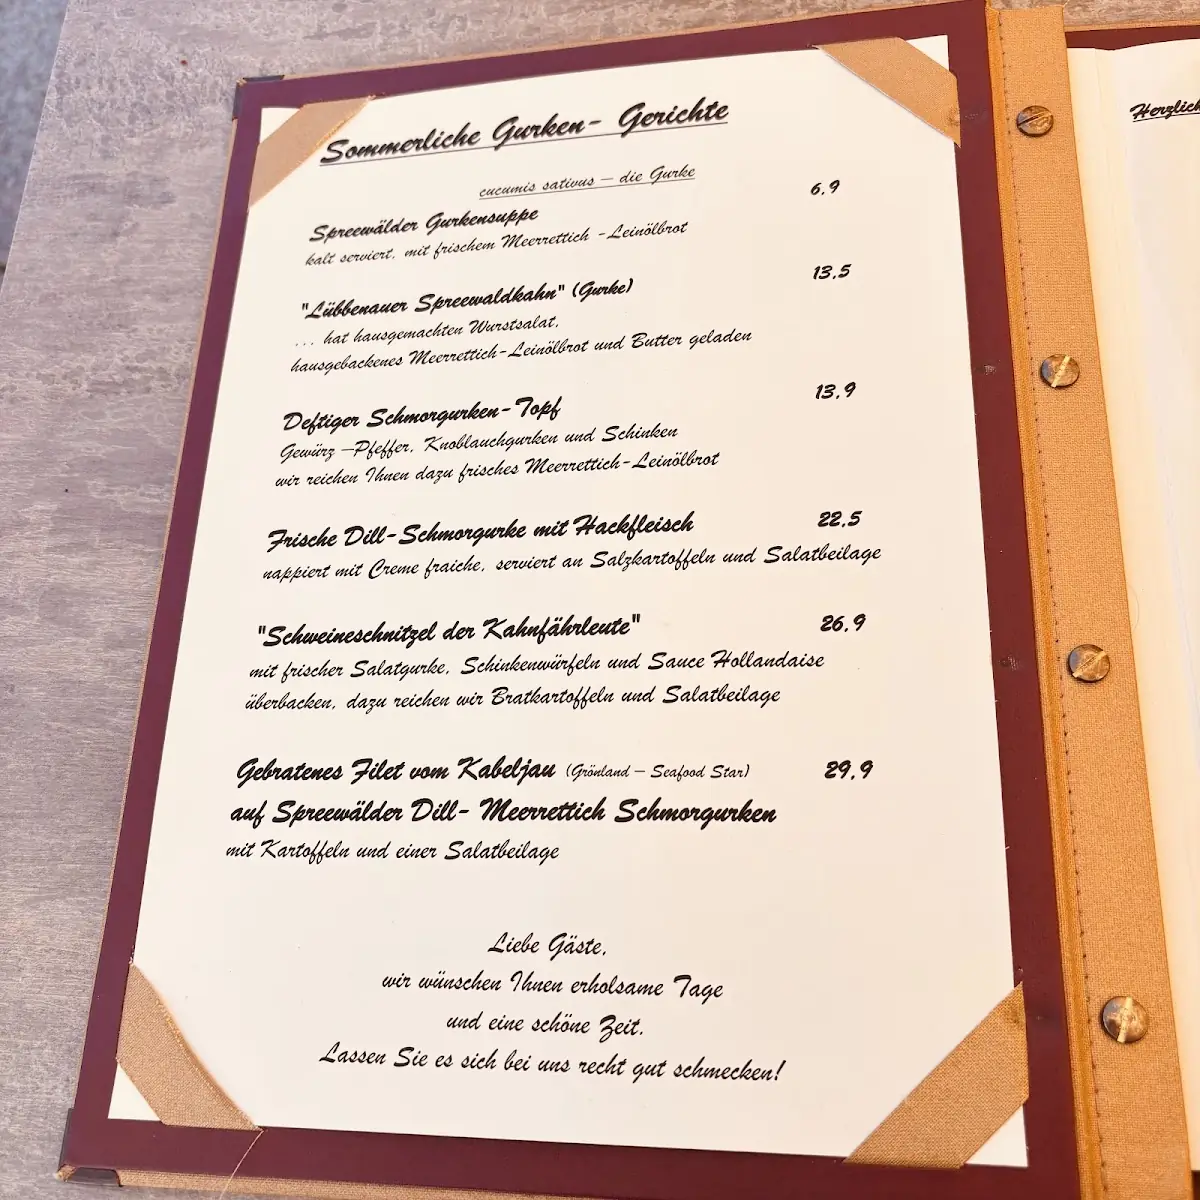 Sommerliche Gurken- Gerichte
cucumis sativus – die Gurke
Spreewälder Gurkensuppe 6.9
kalt serviert, mit frischem Meerrettich -Leinölbrot
"Lübbenauer Spreewaldkahn" (Gurke) 13,5
... hat hausgemachten Wurstsalat,
hausgebackenes Meerrettich-Leinölbrot und Butter geladen
Deftiger Schmorgurken-Topf 13,9
Gewürz –Pfeffer, Knoblauchgurken und Schinken
wir reichen Ihnen dazu frisches Meerrettich-Leinölbrot
Frische Dill-Schmorgurke mit Hackfleisch 22,5
nappiert mit Creme fraiche, serviert an Salzkartoffeln und Salatbeilage
"Schweineschnitzel der Kahnfährleute" 26,9
mit frischer Salatgurke, Schinkenwürfeln und Sauce Hollandaise
überbacken, dazu reichen wir Bratkartoffeln und Salatbeilage
Gebratenes Filet vom Kabeljau (Grönland – Seafood Star) 29,9
auf Spreewälder Dill- Meerrettich Schmorgurken
mit Kartoffeln und einer Salatbeilage
Liebe Gäste,
wir wünschen Ihnen erholsame Tage
und eine schöne Zeit.
Lassen Sie es sich bei uns recht gut schmecken!